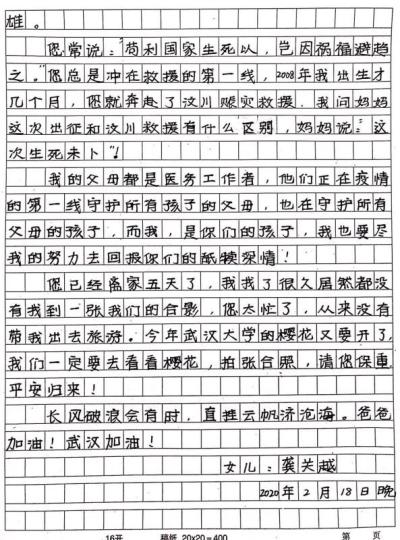 雄。
您常说：“苟利国家生死以，岂因祸福避趋
之。”您总是冲在救援的第一线，2008年我出生才
几个月，您就奔赴了汶川赈灾救援。我问妈妈
这次出征和汶川救援有什么区别，妈妈说：“这
次生死未卜”！
我的父母都是医务工作者，他们正在疫情
的第一线守护所有孩子的父母，也在守护所有
父母的孩子，而我，是你们的孩子，我也要尽
我的努力去回报你们的舐犊深情！
您已经离家五天了，我找了很久居然都没
有找到一张我们的合影，您太忙了，从来没有
带我出去旅游。今年武汉大学的樱花又要开了，
我们一定要去看看樱花，拍张合照，请您保重，
平安归来！
长风破浪会有时，直挂云帆济沧海。爸爸
加油！武汉加油！
女儿：龚关越
2020年2月18日晚
16开 稿纸 20×20=400 第 页